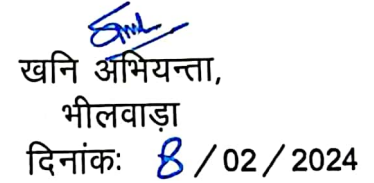 खनि अभियन्ता,
भीलवाड़ा
दिनांकः 8 / 02 / 2024